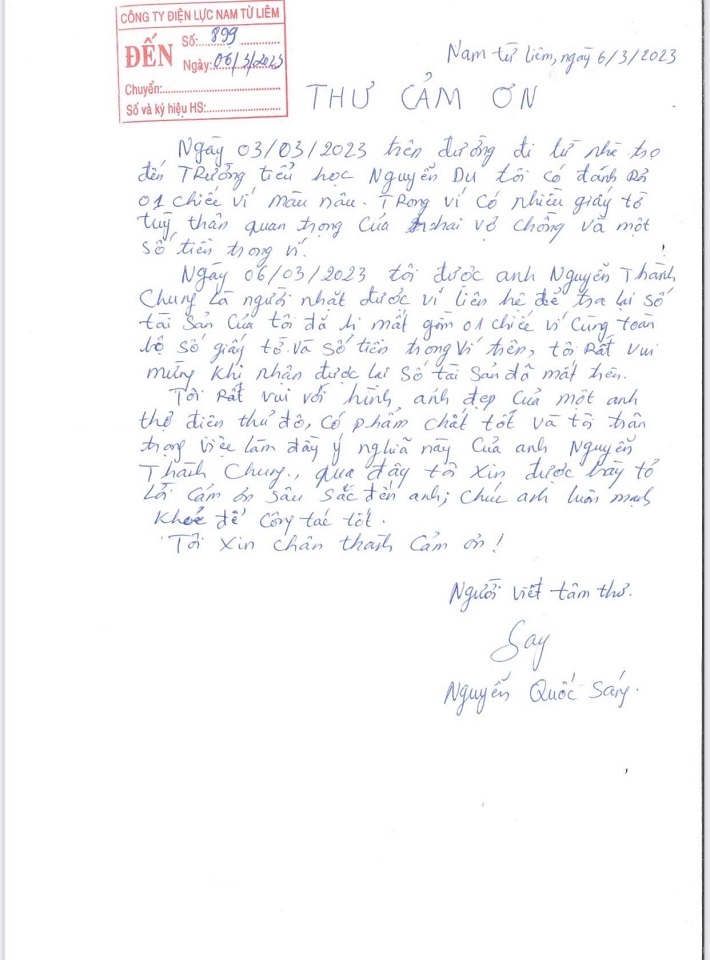 CÔNG TY ĐIỆN LỰC NAM TỪ LIÊM
ĐẾN
Số: 899
Ngày: 06/3/2023
Chuyển:
Số và ký hiệu HS:
Nam từ liêm, ngày 6/3/2023
THƯ CẢM ƠN
Ngày 03/03/2023 trên đường đi từ nhà trọ
đến TRường tiểu học Nguyễn Du tôi có đánh Rơi
01 chiếc ví màu nâu. TRong ví có nhiều giấy tờ
tuỳ thân quan trọng của hai vợ chồng và một
số tiền trong ví.
Ngày 06/03/2023 tôi được anh Nguyễn Thành
Chung là người nhặt được ví liên hệ để trả lại số
tài sản của tôi đã bị mất gồm 01 chiếc ví cùng toàn
bộ số giấy tờ và số tiền trong ví trên, tôi Rất vui
mừng khi nhận được lại số tài sản đã mất trên.
Tôi Rất vui với hình ảnh đẹp của một anh
thợ điện thủ đô, có phẩm chất tốt và tôi trân
trọng việc làm đầy ý nghĩa này của anh Nguyễn
Thành Chung., qua đây tôi xin được bày tỏ
lời cảm ơn sâu sắc đến anh; chúc anh luôn mạnh
khoẻ để công tác tốt.
Tôi xin chân thành cảm ơn!
Người viết tâm thư.
Say
Nguyễn Quốc Sáng.